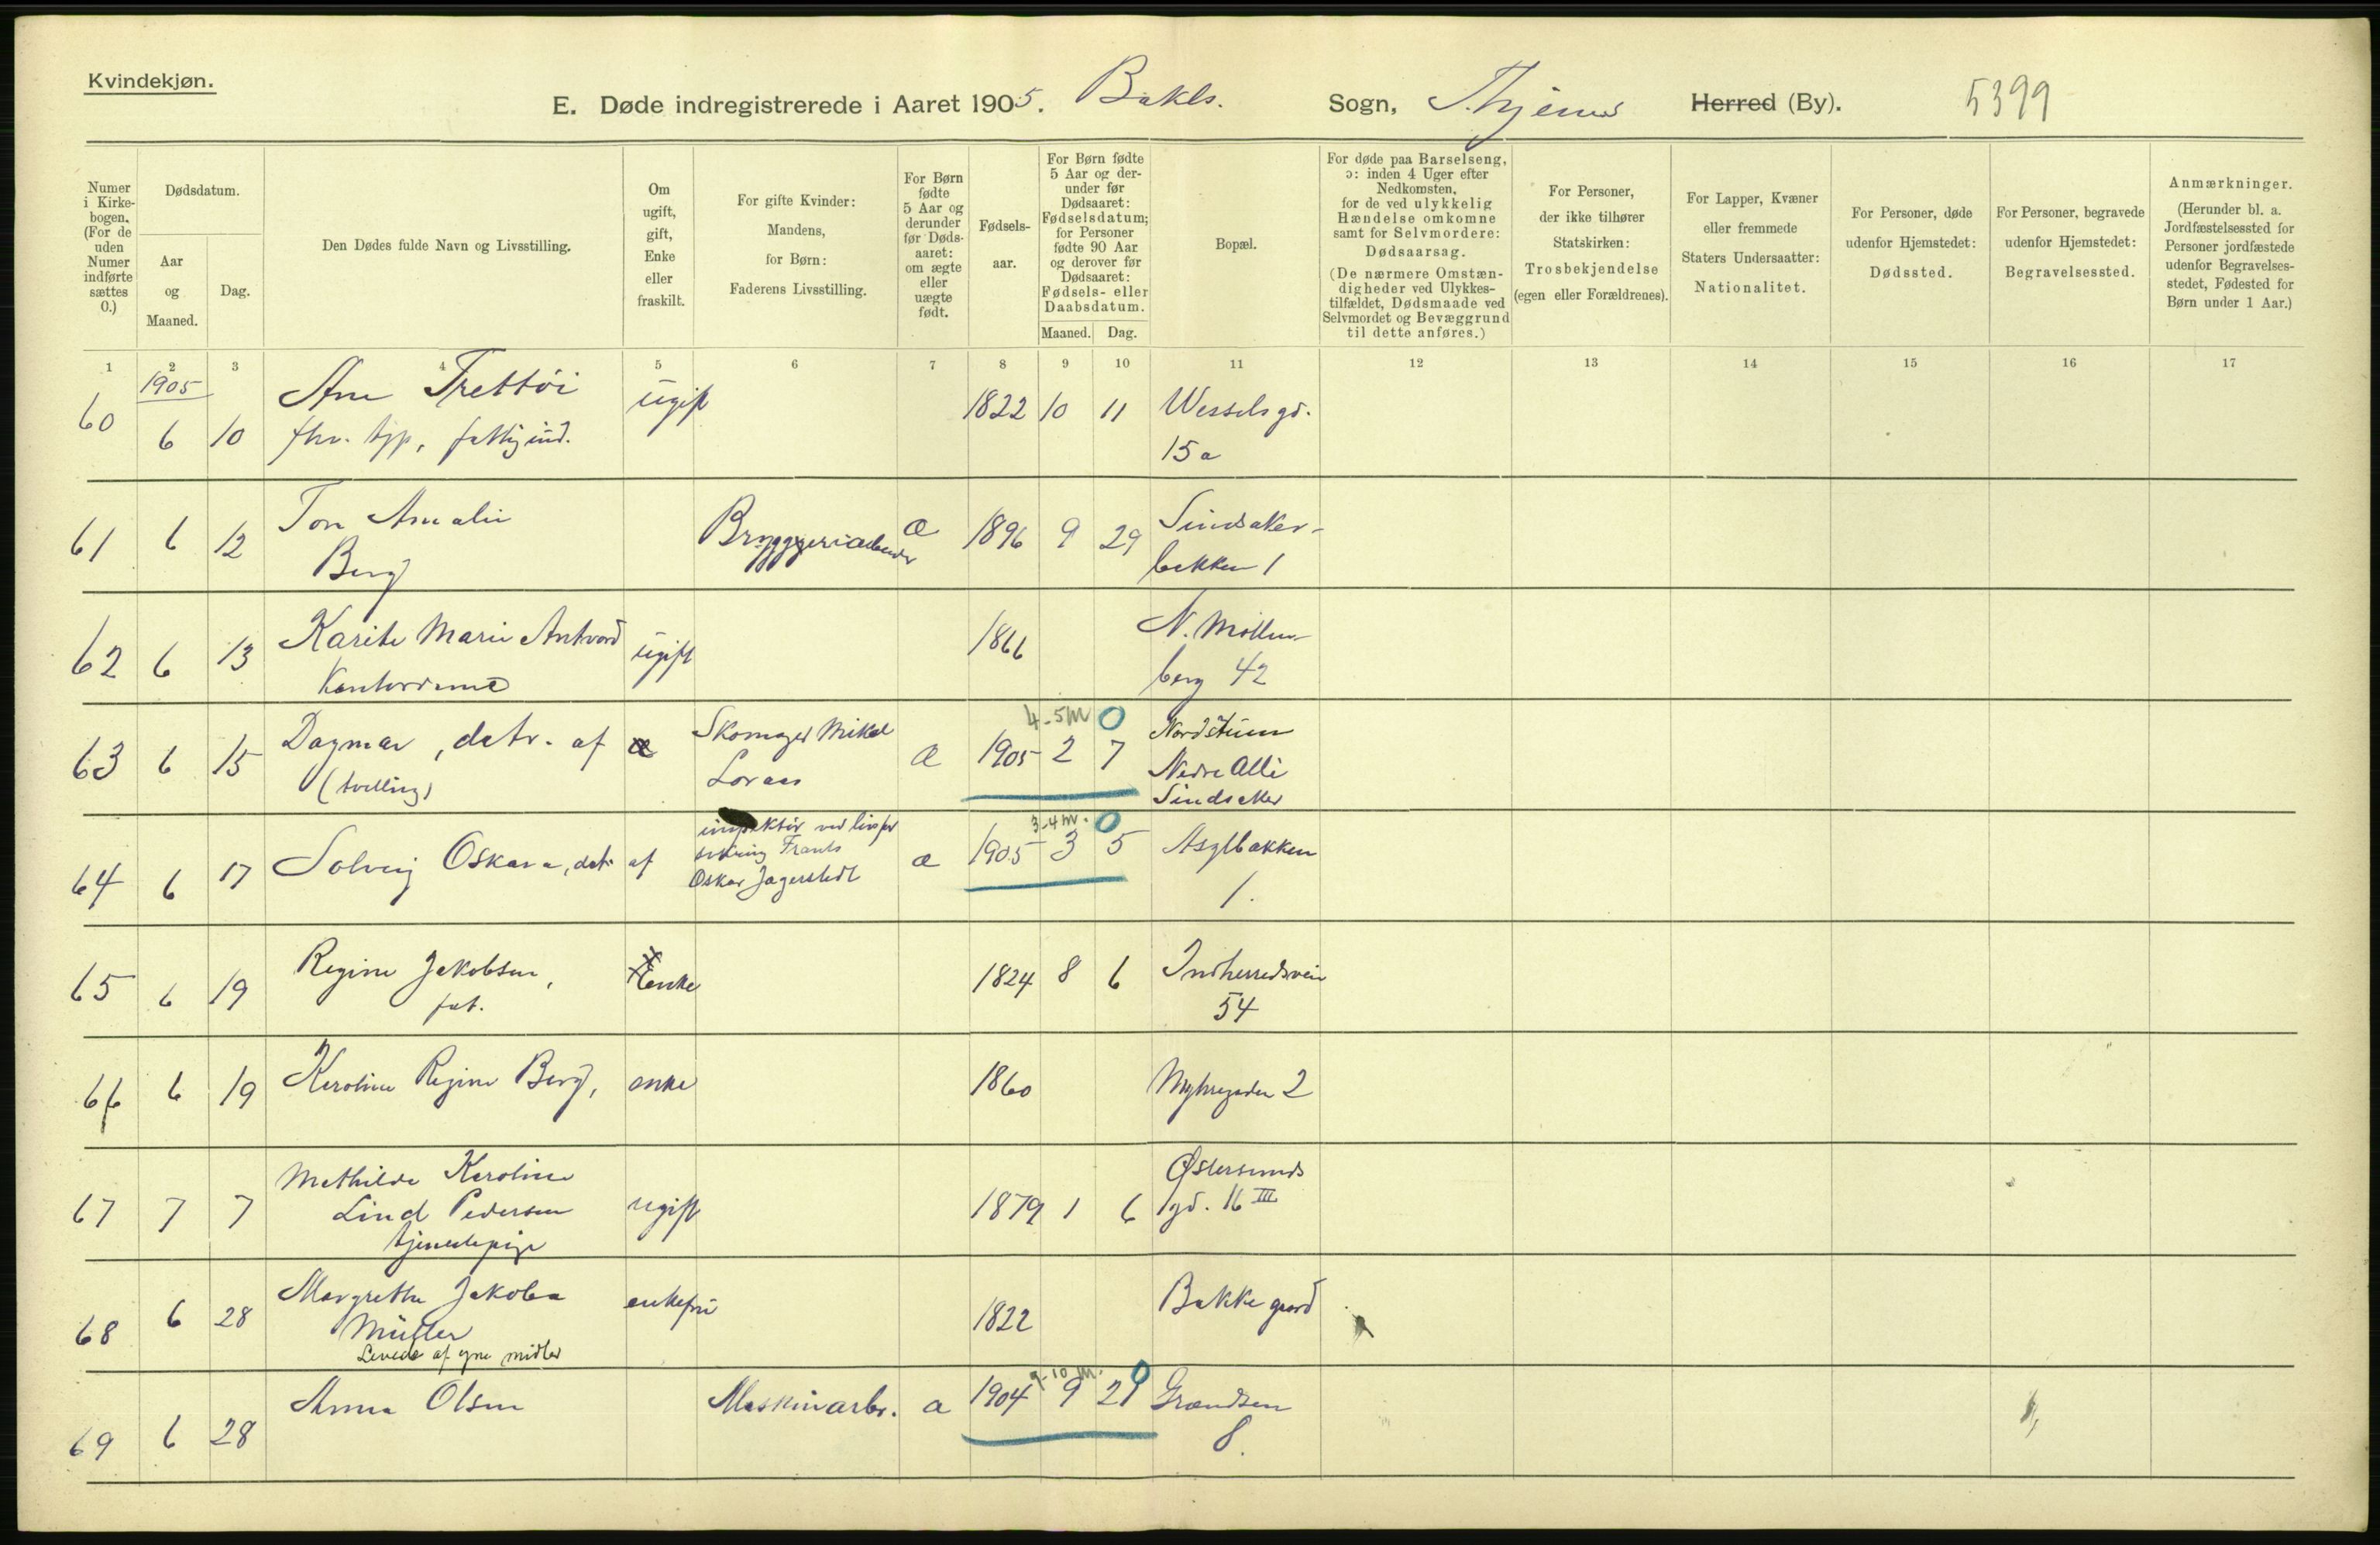 Kvindekjøn.
E. Døde indregistrerede i Aaret 1905. Bakls. Sogn, Thjems Herred (By). 5399
Numer i Kirkebogen. (For de uden Numer indførte sættes 0.)
Dødsdatum.
Aar og Maaned.
Dag.
Den Dødes fulde Navn og Livsstilling.
Om ugift, gift, Enke eller fraskilt.
For gifte Kvinder: Mandens, for Børn: Faderens Livsstilling.
For Børn fødte 5 Aar og derunder før Dødsaaret: om ægte eller uægte født.
Fødselsaar.
For Børn fødte 5 Aar og derunder før Dødsaaret: Fødselsdatum; for Personer fødte 90 Aar og derover før Dødsaaret: Fødsels- eller Daabsdatum.
Maaned. Dag.
Bopæl.
For døde paa Barselseng, ɔ: inden 4 Uger efter Nedkomsten, for de ved ulykkelig Hændelse omkomne samt for Selvmordere: Dødsaarsag. (De nærmere Omstændigheder ved Ulykkestilfældet, Dødsmaade ved Selvmordet og Bevæggrund til dette anføres.)
For Personer, der ikke tilhører Statskirken: Trosbekjendelse (egen eller Forældrenes).
For Lapper, Kvæner eller fremmede Staters Undersaatter: Nationalitet.
For Personer, døde udenfor Hjemstedet: Dødssted.
For Personer, begravede udenfor Hjemstedet: Begravelsessted.
Anmærkninger. (Herunder bl. a. Jordfæstelsessted for Personer jordfæstede udenfor Begravelsesstedet, Fødested for Børn under 1 Aar.)
1 2 3 4 5 6 7 8 9 10 11 12 13 14 15 16 17
1905
60 6 10 Ane Trettöi ugift 1822 10 11 Wesselsgd.
fhv. tjp, fattigind. 15 a
61 6 12 Tora Amalie Bryggeriarbeider æ 1896 9 29 Sindsaker-
Berg bakken 1
62 6 13 Karite Marie Antvord ugift 1866 N. Möllen-
Kontordame berg 42
4-5 m 0
63 6 15 Dagmar, datr. af Skomager Mikal æ 1905 2 7 Nordstuen
(tvilling) Loraas Nedre Alle
Sindsaker
3-4 m. 0
64 6 17 Solveig Oskara, dat. af inspektör ved livsfor æ 1905 3 5 Asylbakken
sikring Frants
Oskar Jagerstedt 1.
65 6 19 Regine Jakobsen, enke 1824 8 6 Indherredsvein
fat. 54
66 6 19 Karoline Regine Berg, enke 1860 Myhregaden 2
67 7 7 Mathilde Karoline
Lind Pedersen ugift 1879 1 6 Østersunds
tjenestepige gd. 16 III
68 6 28 Margrethe Jakoba enkefru 1822 Bakke gaard
Müller
Levede af egne midler
9-10 m. 0
69 6 28 Anna Olsen Maskinarb. æ 1904 9 21 Grændsen
8.